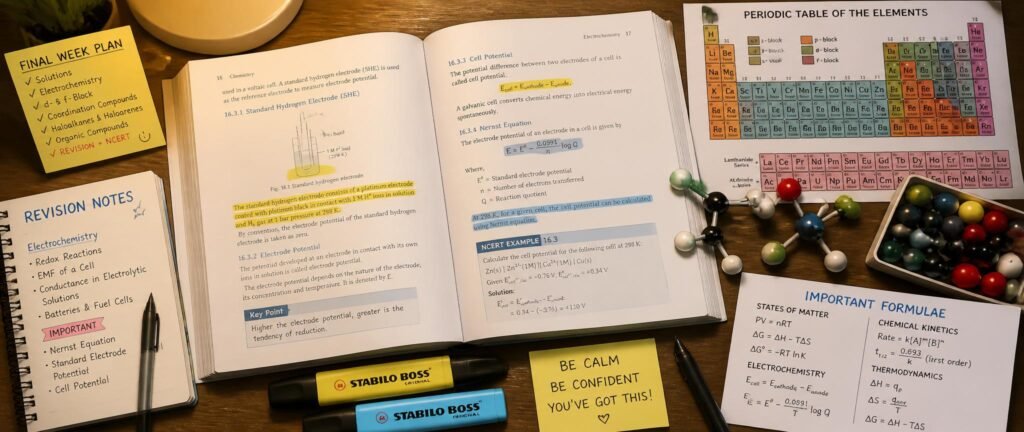 FINAL WEEK PLAN
✓ Solutions
✓ Electrochemistry
✓ d- & f-Block
✓ Coordination Compounds
✓ Haloalkanes & Haloarenes
✓ Organic Compounds
✓ REVISION + NCERT
REVISION NOTES
Electrochemistry
• Redox Reactions
• EMF of a Cell
• Conductance in Electrolytic
Solutions
• Batteries & Fuel Cells
IMPORTANT
• Nernst Equation
• Standard Electrode
Potential
• Cell Potential
Chemistry
used in a voltaic cell. A standard hydrogen electrode (SHE) is used
as the reference electrode to measure electrode potential.
16.3.1 Standard Hydrogen Electrode (SHE)
(298 K)
Fig. 16.1 Standard hydrogen electrode
The standard hydrogen electrode consists of a platinum electrode
coated with platinum black in contact with 1 M H⁺ ions in solution
and H₂ gas at 1 bar pressure at 298 K.
By convention, the electrode potential of the standard hydrogen
electrode is taken as zero.
16.3.2 Electrode Potential
The potential developed at an electrode in contact with its own
ions in solution is called electrode potential.
The electrode potential depends on the nature of the electrode,
its concentration and temperature. It is denoted by E.
Key Point
Higher the electrode potential, greater is the
tendency of reduction.
Electrochemistry 17
16.3.3 Cell Potential
The potential difference between two electrodes of a cell is
called cell potential.
E cell = E cathode − E anode
A galvanic cell converts chemical energy into electrical energy
spontaneously.
16.3.4 Nernst Equation
The electrode potential of an electrode in a cell is given by
E = E° − 0.0591/n log Q
Where,
E° = Standard electrode potential
n = Number of electrons transferred
Q = Reaction quotient
At 298 K, for a given cell, the cell potential can be calculated
using Nernst equation.
NCERT EXAMPLE 16.3
Calculate the cell potential for the following cell at 298 K:
Zn(s) | Zn²⁺(1M) || Cu²⁺(1M) | Cu(s)
Given
Solution:
STABILO BOSS
ORIGINAL
STABILO BOSS
ORIGINAL
BE CALM
BE CONFIDENT
YOU'VE GOT THIS!
♡
PERIODIC TABLE OF THE ELEMENTS
s-block
p-block
d-block
f-block
H
Li Be
Na Mg
He
Lanthanide
Series
La Ce Pr Nd Pm Sm Eu Gd Tb Dy Ho Er Tm Yb Lu
Series
IMPORTANT FORMULAE
STATES OF MATTER
PV = nRT
ΔG = ΔH − TΔS
ΔG° = −RT ln K
ELECTROCHEMISTRY
E cell = E cathode − E anode
E = E° − 0.0591/T log Q
CHEMICAL KINETICS
Rate = k[A]ᵐ[B]ⁿ
t₁/₂ = 0.693/k (first order)
THERMODYNAMICS
ΔH = qₚ
ΔG = ΔH − TΔS